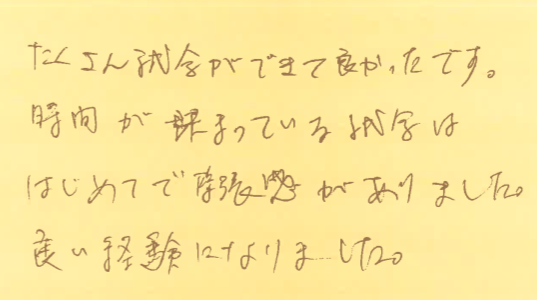 たくさん試合ができて良かったです。
時間が まっている試合は
はじめてで緊張感がありました。
良い経験になりました。